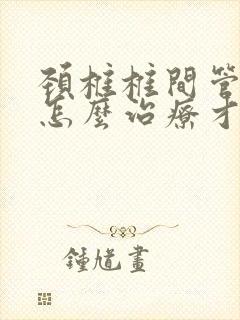 頚椎椎間管
怎麼治療才
鍾馗畫